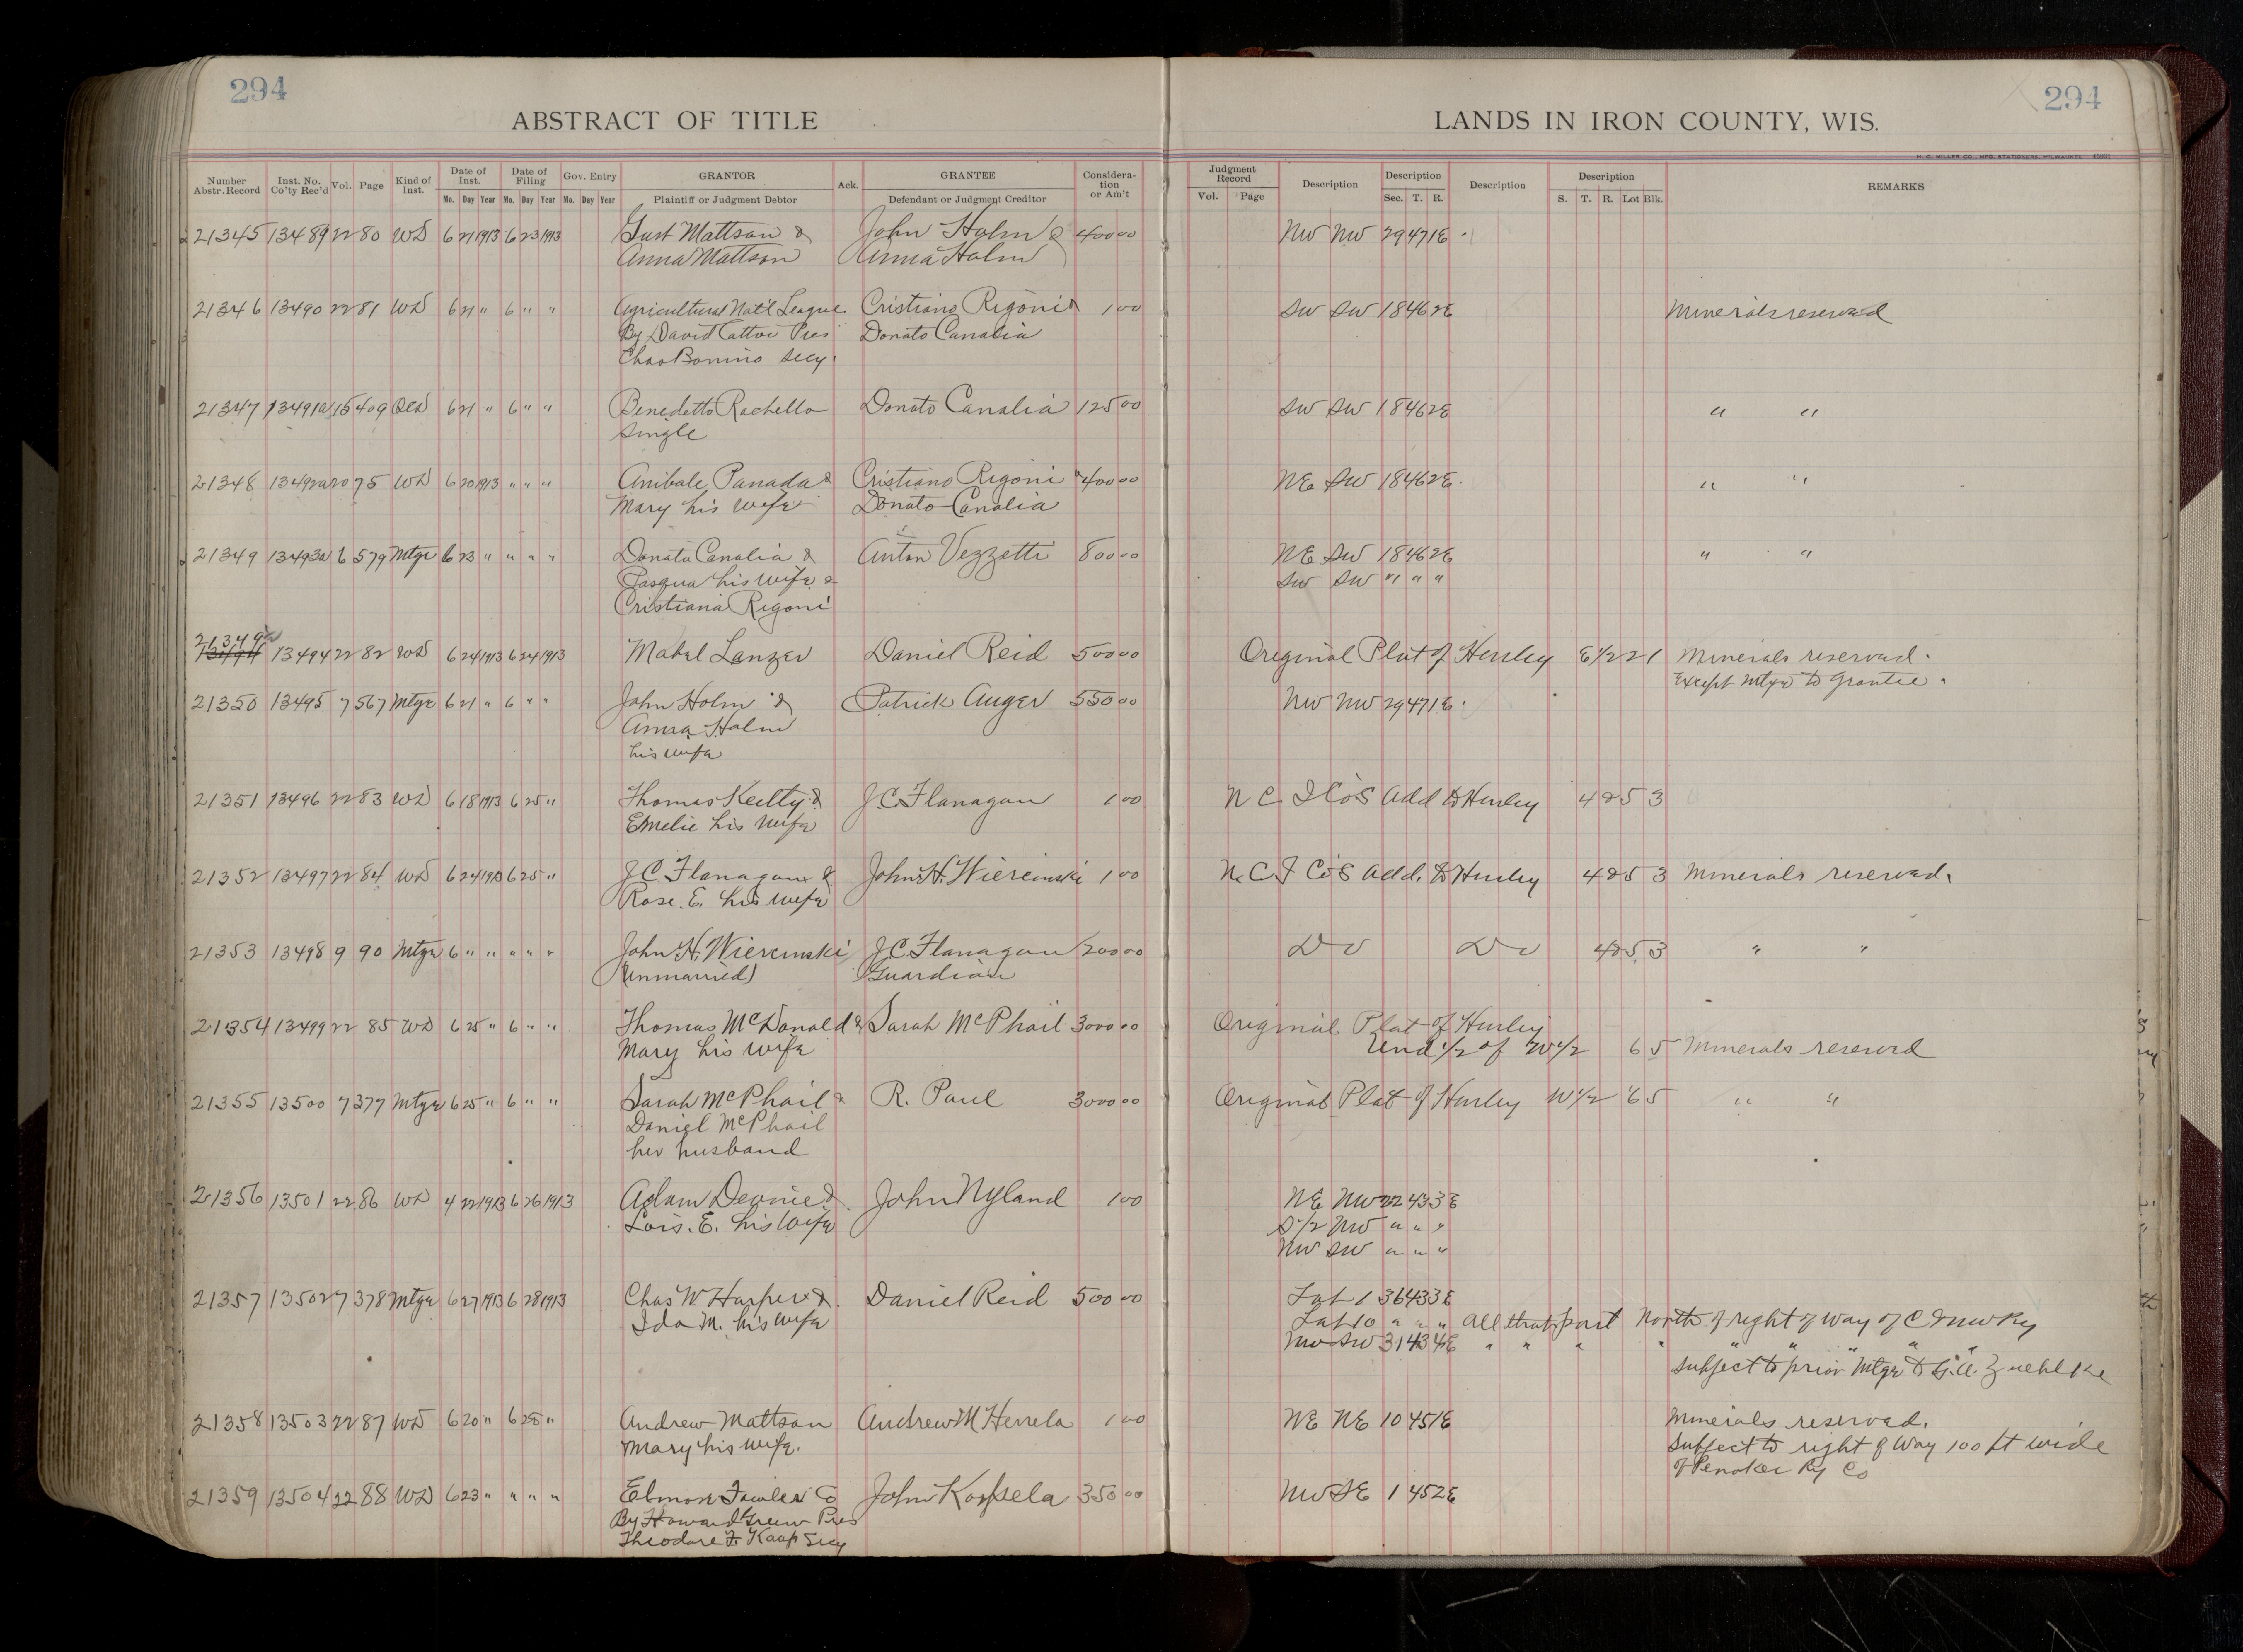 294
294
ABSTRACT OF TITLE
LANDS IN IRON COUNTY, WIS.
H. C. MILLER CO., MFG. STATIONERS, MILWAUKEE
Number Abstr. Record Inst. No. Co'ty Rec'd Vol. Page Kind of Inst. Date of Inst. Mo. Day Year Date of Filing Mo. Day Year Gov. Entry Mo. Day Year GRANTOR Plaintiff or Judgment Debtor Ack. GRANTEE Defendant or Judgment Creditor Consideration or Am't
Judgment Record Vol. Page Description Description Sec. T. R. Description Description S. T. R. Lot Blk. REMARKS
21345 13489 22 80 WD 6 21 1913 6 23 1913 Gust Mattson & John Holm & 400 00 NW NW 29 47 1E
Anna Mattson Anna Holm
21346 13490 22 81 WD 6 21 " 6 " " Agricultural Nat'l League Cristiano Rigoni & 1 00 SW SW 18 46 2E Minerals reserved
By David Cattoi Pres Donato Canalia
Chas Bonino Secy.
21347 13491a 15 409 QCD 6 21 " 6 " " Benedetto Rachello Donato Canalia 125 00 SW SW 18 46 2E " "
Single
21348 13492a 20 75 WD 6 20 1913 " " " Anibale Panada & Cristiano Rigoni 400 00 NE SW 18 46 2E " "
Mary his wife Donato Canalia
21349 13493a 6 579 Mtge 6 23 " " " " Donato Canalia & Anton Vezzetti 800 00 NE SW 18 46 2E " "
Pasqua his wife & SW SW " " "
Cristiana Rigoni
21349a
13494 13494 22 82 WD 6 24 1913 6 24 1913 Mabel Lanzer Daniel Reid 500 00 Original Plat of Hurley E 1/2 2 21 Minerals reserved.
Except Mtge to Grantee.
21350 13495 7 567 Mtge 6 21 " 6 " " John Holm & Patrick Auger 550 00 NW NW 29 47 1E
Anna Holm
his wife
21351 13496 22 83 WD 6 18 1913 6 25 " Thomas Keilty & J C Flanagan 1 00 N C I Co's Add to Hurley 4 & 5 3
Emelie his wife
21352 13497 22 84 WD 6 24 1913 6 25 " J. C. Flanagan & John H. Wiercinski 1 00 N. C. I Co's Add. to Hurley 4 & 5 3 Minerals reserved.
Rose. E. his wife
21353 13498 9 90 Mtge 6 " " " " " John H. Wiercinski J C Flanagan 200 00 Do Do 4 & 5 3 " "
(unmarried) Guardian
21354 13499 22 85 WD 6 25 " 6 " " Thomas McDonald & Sarah McPhail 3000 00 Original Plat of Hurley
Mary his wife Und 1/2 of W 1/2 6 5 Minerals reserved
21355 13500 7 377 Mtge 6 25 " 6 " " Sarah McPhail & R. Paul 3000 00 Original Plat of Hurley W 1/2 6 5 " "
Daniel McPhail
her husband
21356 13501 22 86 WD 4 22 1913 6 26 1913 Adam Devine & John Nyland 1 00 NE NW 22 43 3E
Lois. E. his wife S 1/2 NW " " "
NW SW " " "
21357 13502 7 378 Mtge 6 27 1913 6 28 1913 Chas W. Harper & Daniel Reid 500 00 Lot 1 36 43 3E
Ida M. his wife Lot 10 " " " All that part North of right of way of C & NW Ry
NW SW 31 43 4E " " " " " " " " "
Subject to prior Mtge to G. A. Zuehlke
21358 13503 22 87 WD 6 20 " 6 28 " Andrew Mattson Andrew M Herrela 1 00 NE NE 10 45 1E Minerals reserved.
Mary his wife. Subject to right of way 100 ft wide
of Penokee Ry Co
21359 13504 22 88 WD 6 23 " " " " Elmore Fowler Co John Korpela 350 00 NW SE 1 45 2E
By Howard Greene Pres
Theodore F. Kaap Secy